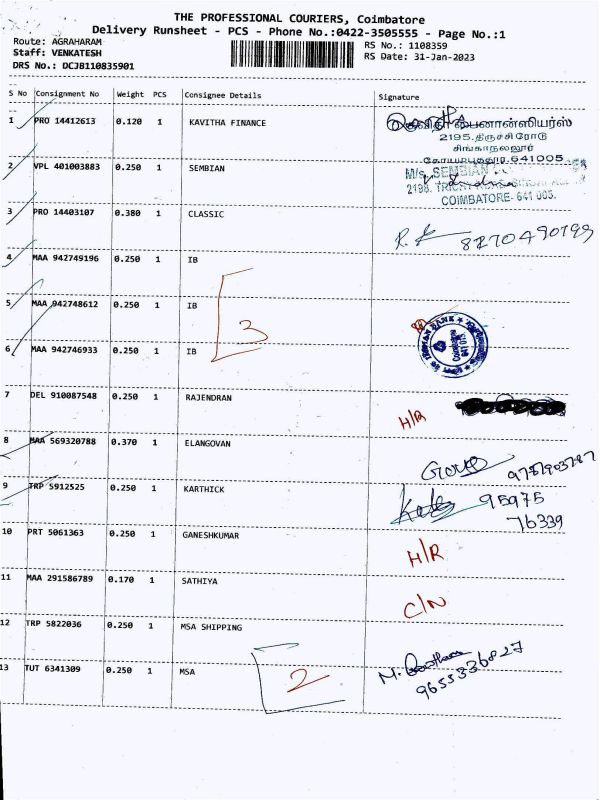 THE PROFESSIONAL COURIERS, Coimbatore
Delivery Runsheet - PCS - Phone No.:0422-3505555 - Page No.:1
Route: AGRAHARAM
RS No.: 1108359
Staff: VENKATESH
RS Date: 31-Jan-2023
DRS No.: DCJB110835901
S No Consignment No Weight PCS Consignee Details Signature
1 PRO 14412613 0.120 1 KAVITHA FINANCE
பைனான்ஸியர்ஸ்
2195, திருச்சி ரோடு
சிங்காநலலூர்
கோயமபுதூர் 641005
2 VPL 401003883 0.250 1 SEMBIAN
M/s. SEMBIAN
2198, TRICHY
COIMBATORE- 641 005.
3 PRO 14403107 0.380 1 CLASSIC
8270490199
4 MAA 942749196 0.250 1 IB
5 MAA 942748612 0.250 1 IB
3
INDIAN BANK
6 MAA 942746933 0.250 1 IB
7 DEL 910087548 0.250 1 RAJENDRAN
H/R
8 MAA 569320788 0.370 1 ELANGOVAN
9751903787
9 TRP 5912525 0.250 1 KARTHICK
95975
76339
10 PRT 5061363 0.250 1 GANESHKUMAR
H/R
11 MAA 291586789 0.170 1 SATHIYA
C/N
12 TRP 5822036 0.250 1 MSA SHIPPING
13 TUT 6341309 0.250 1 MSA
2
9655336827